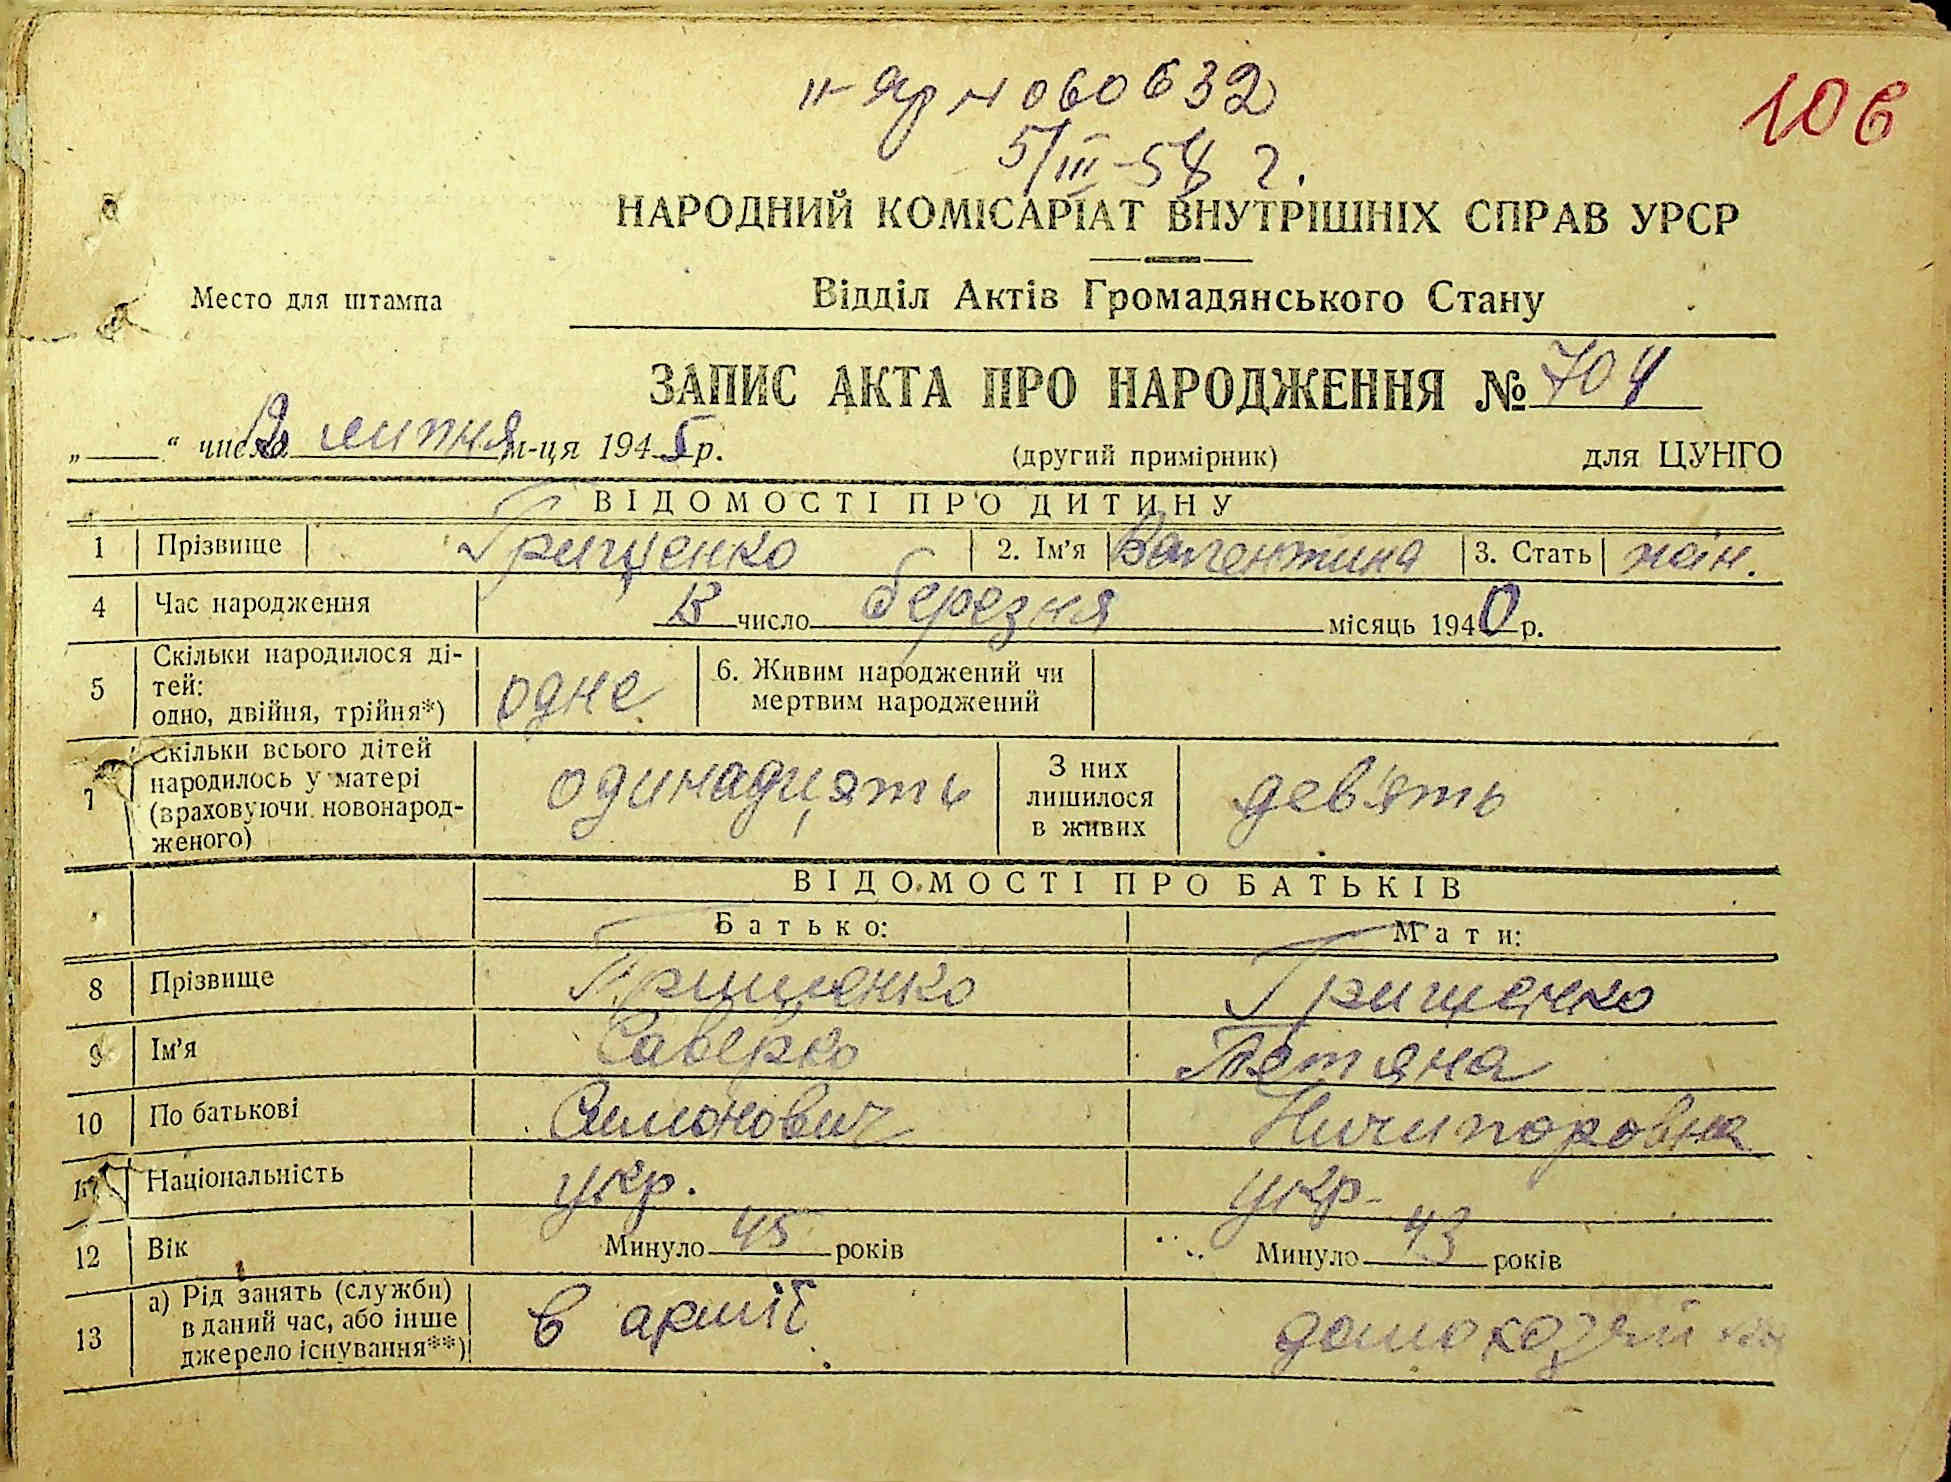 II-ЯР № 060632
5/III-58 г.
106
НАРОДНИЙ КОМІСАРІАТ ВНУТРІШНІХ СПРАВ УРСР
Место для штампа
Відділ Актів Громадянського Стану
ЗАПИС АКТА ПРО НАРОДЖЕННЯ № 704
„ “ число липня м-ця 1945 р. (другий примірник) для ЦУНГО
ВІДОМОСТІ ПРО ДИТИНУ
1 Прізвище Грищенко 2. Ім'я Валентина 3. Стать жін.
4 Час народження число березня місяць 1940 р.
5 Скільки народилося ді-
тей:
одно, двійня, трійня*) одне 6. Живим народжений чи
мертвим народжений
7 Скільки всього дітей
народилось у матері
(враховуючи новонарод-
женого) одинадцять З них
лишилося
в живих девять
ВІДОМОСТІ ПРО БАТЬКІВ
Батько: Мати:
8 Прізвище Грищенко Грищенко
9 Ім'я Саверко Тетяна
10 По батькові Симонович Ничипоровна
Національність укр. укр.
12 Вік Минуло 45 років Минуло 43 років
13 а) Рід занять (служби)
в даний час, або інше
джерело існування**) в армії домохозяйка